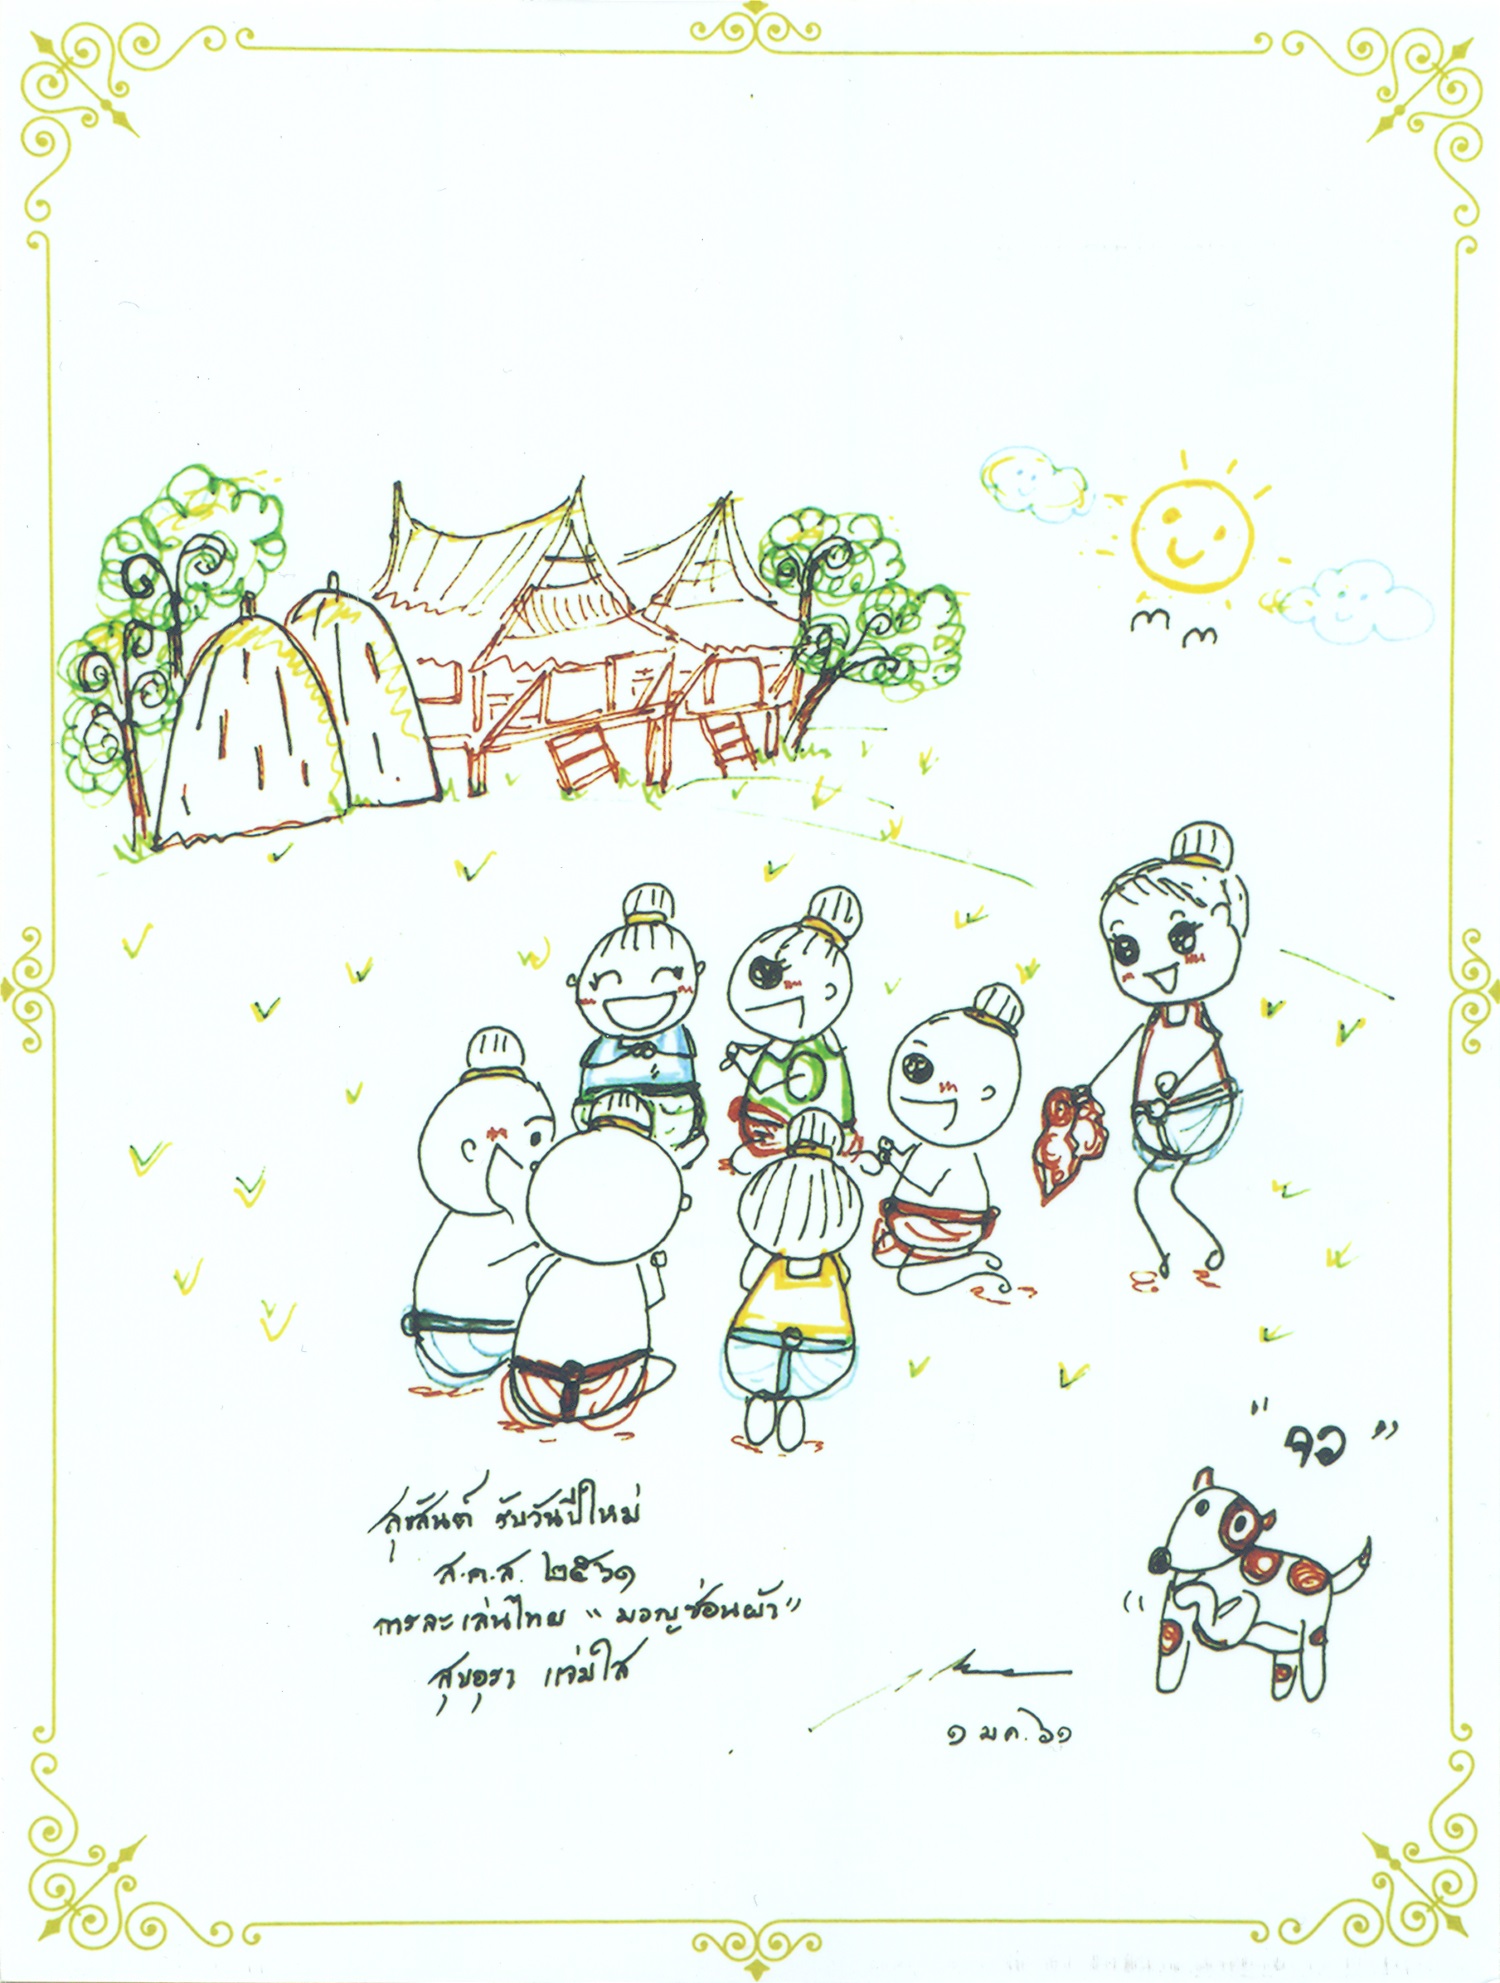 " จอ "
สุขสันต์ รับวันปีใหม่
ส.ค.ส. ๒๕๖๑
การละเล่นไทย "มอญซ่อนผ้า"
สุขอุรา แจ่มใส
๑ ม ค. ๖๑